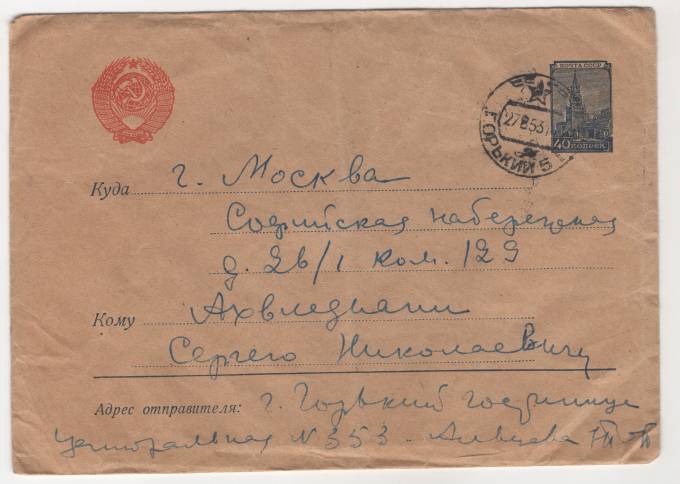 ПОЧТА СССР
40 копеек
27 8 53
ГОРЬКИЙ 5
Куда г. Москва
Софийская набережная
д. 26/1 ком. 129
Кому Ахвледиани
Сергею Николаевичу
Адрес отправителя: г. Горький гостинице
Центральная N 353